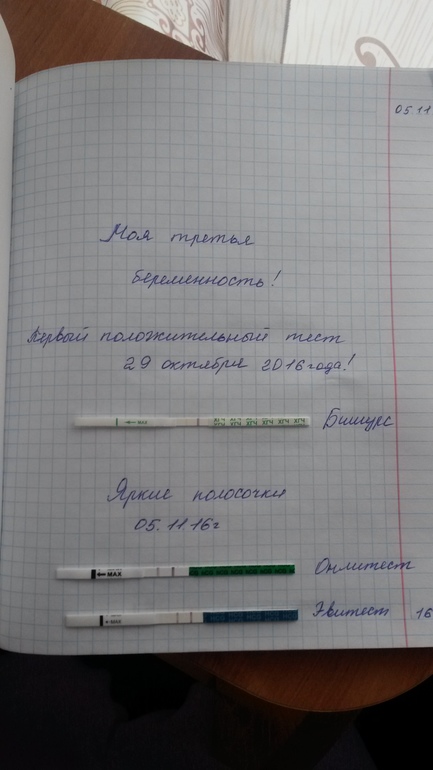 05.11
Моя третья
беременность!
Первый положительный тест
29 октября 2016 года!
MAX
ХГЧ ХГЧ ХГЧ ХГЧ ХГЧ ХГЧ
Бишурс
Яркие полосочки
05.11.16г
MAX
Онлитест
MAX
Эвитест
16